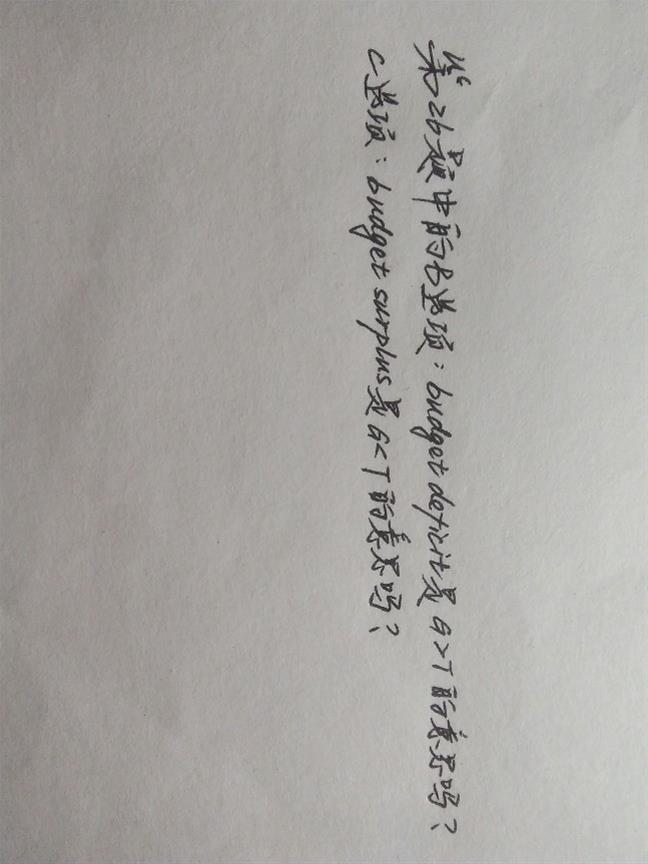 第26题中的B选项：budget deficit是G>T的意思吗？
C选项：budget surplus是G<T的意思吗？